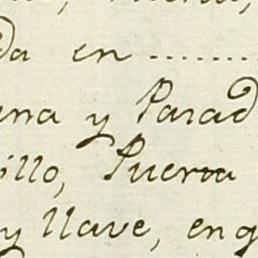 da en ..........
ana y Parad
illo, Puerta
y llave, en q